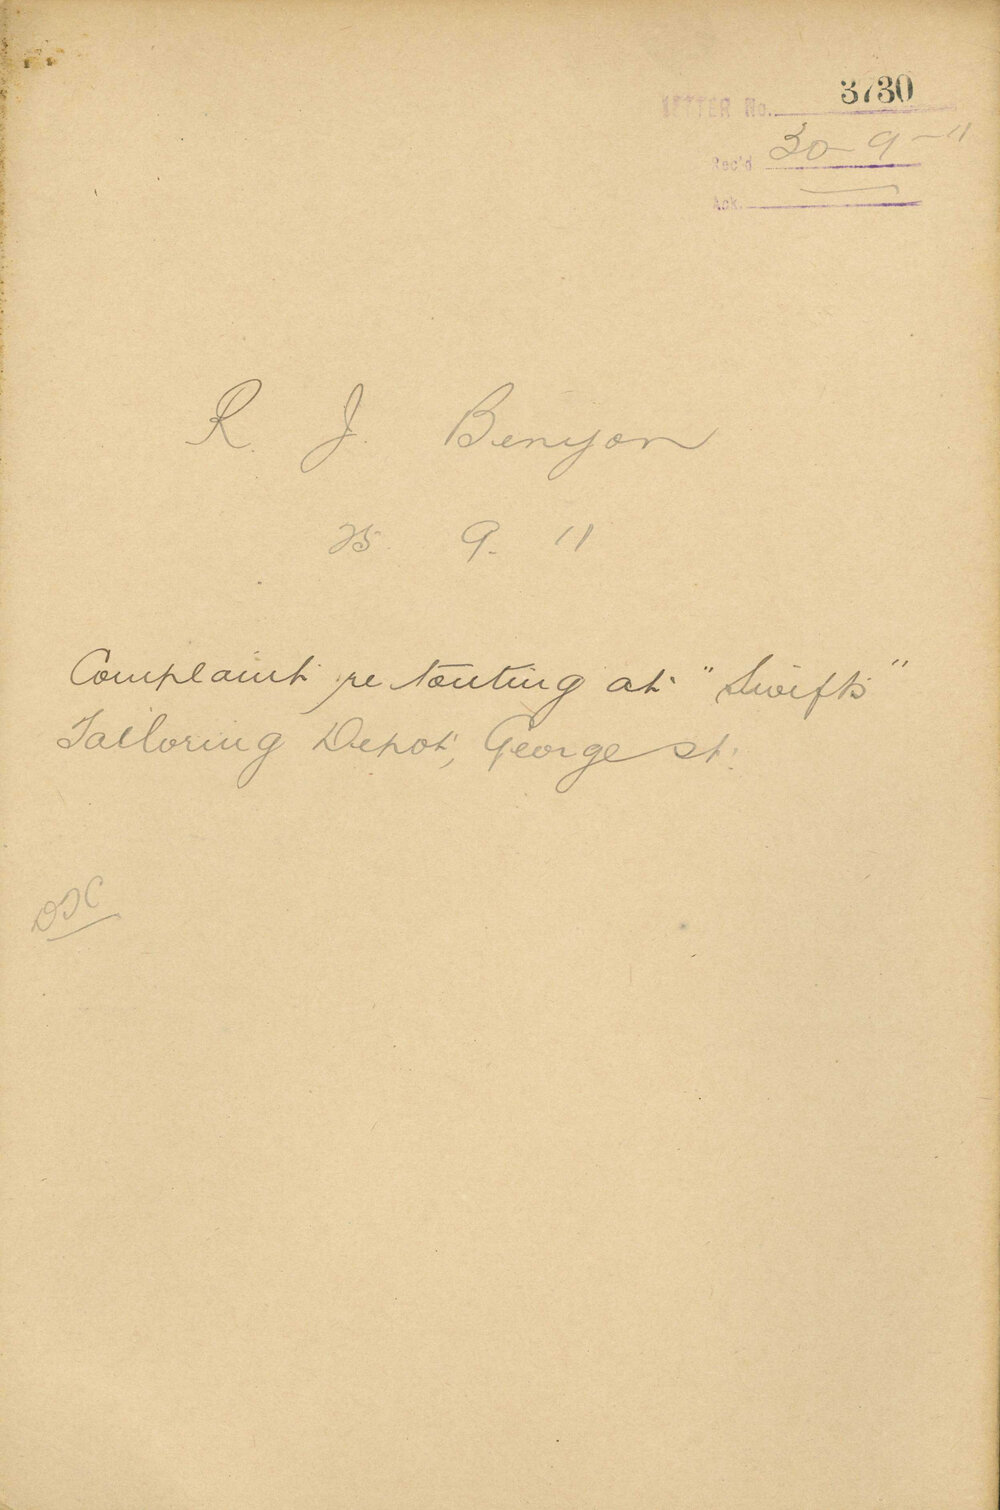 LETTER No. 3730
Rec'd 30-9-11
Ack.
R. J. Benyon
25. 9. 11
Complaint re touting at "Swifts"
Tailoring Depot, George st.